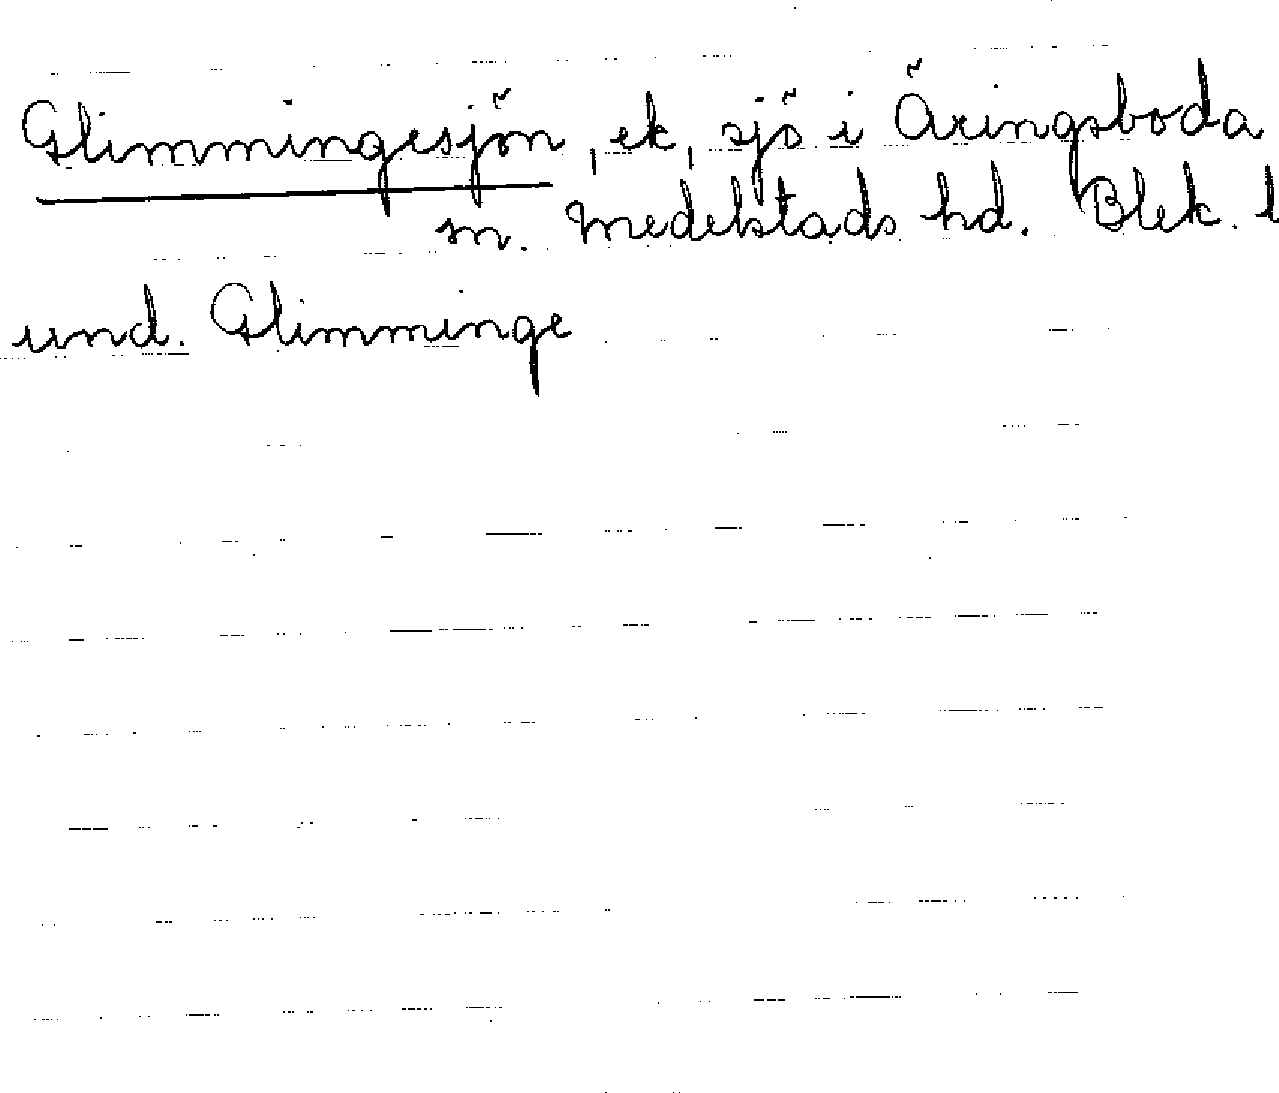 Glimmingesjön, ek, sjö i Äringsboda
sn. Medelstads hd. Blek. l
und. Glimminge